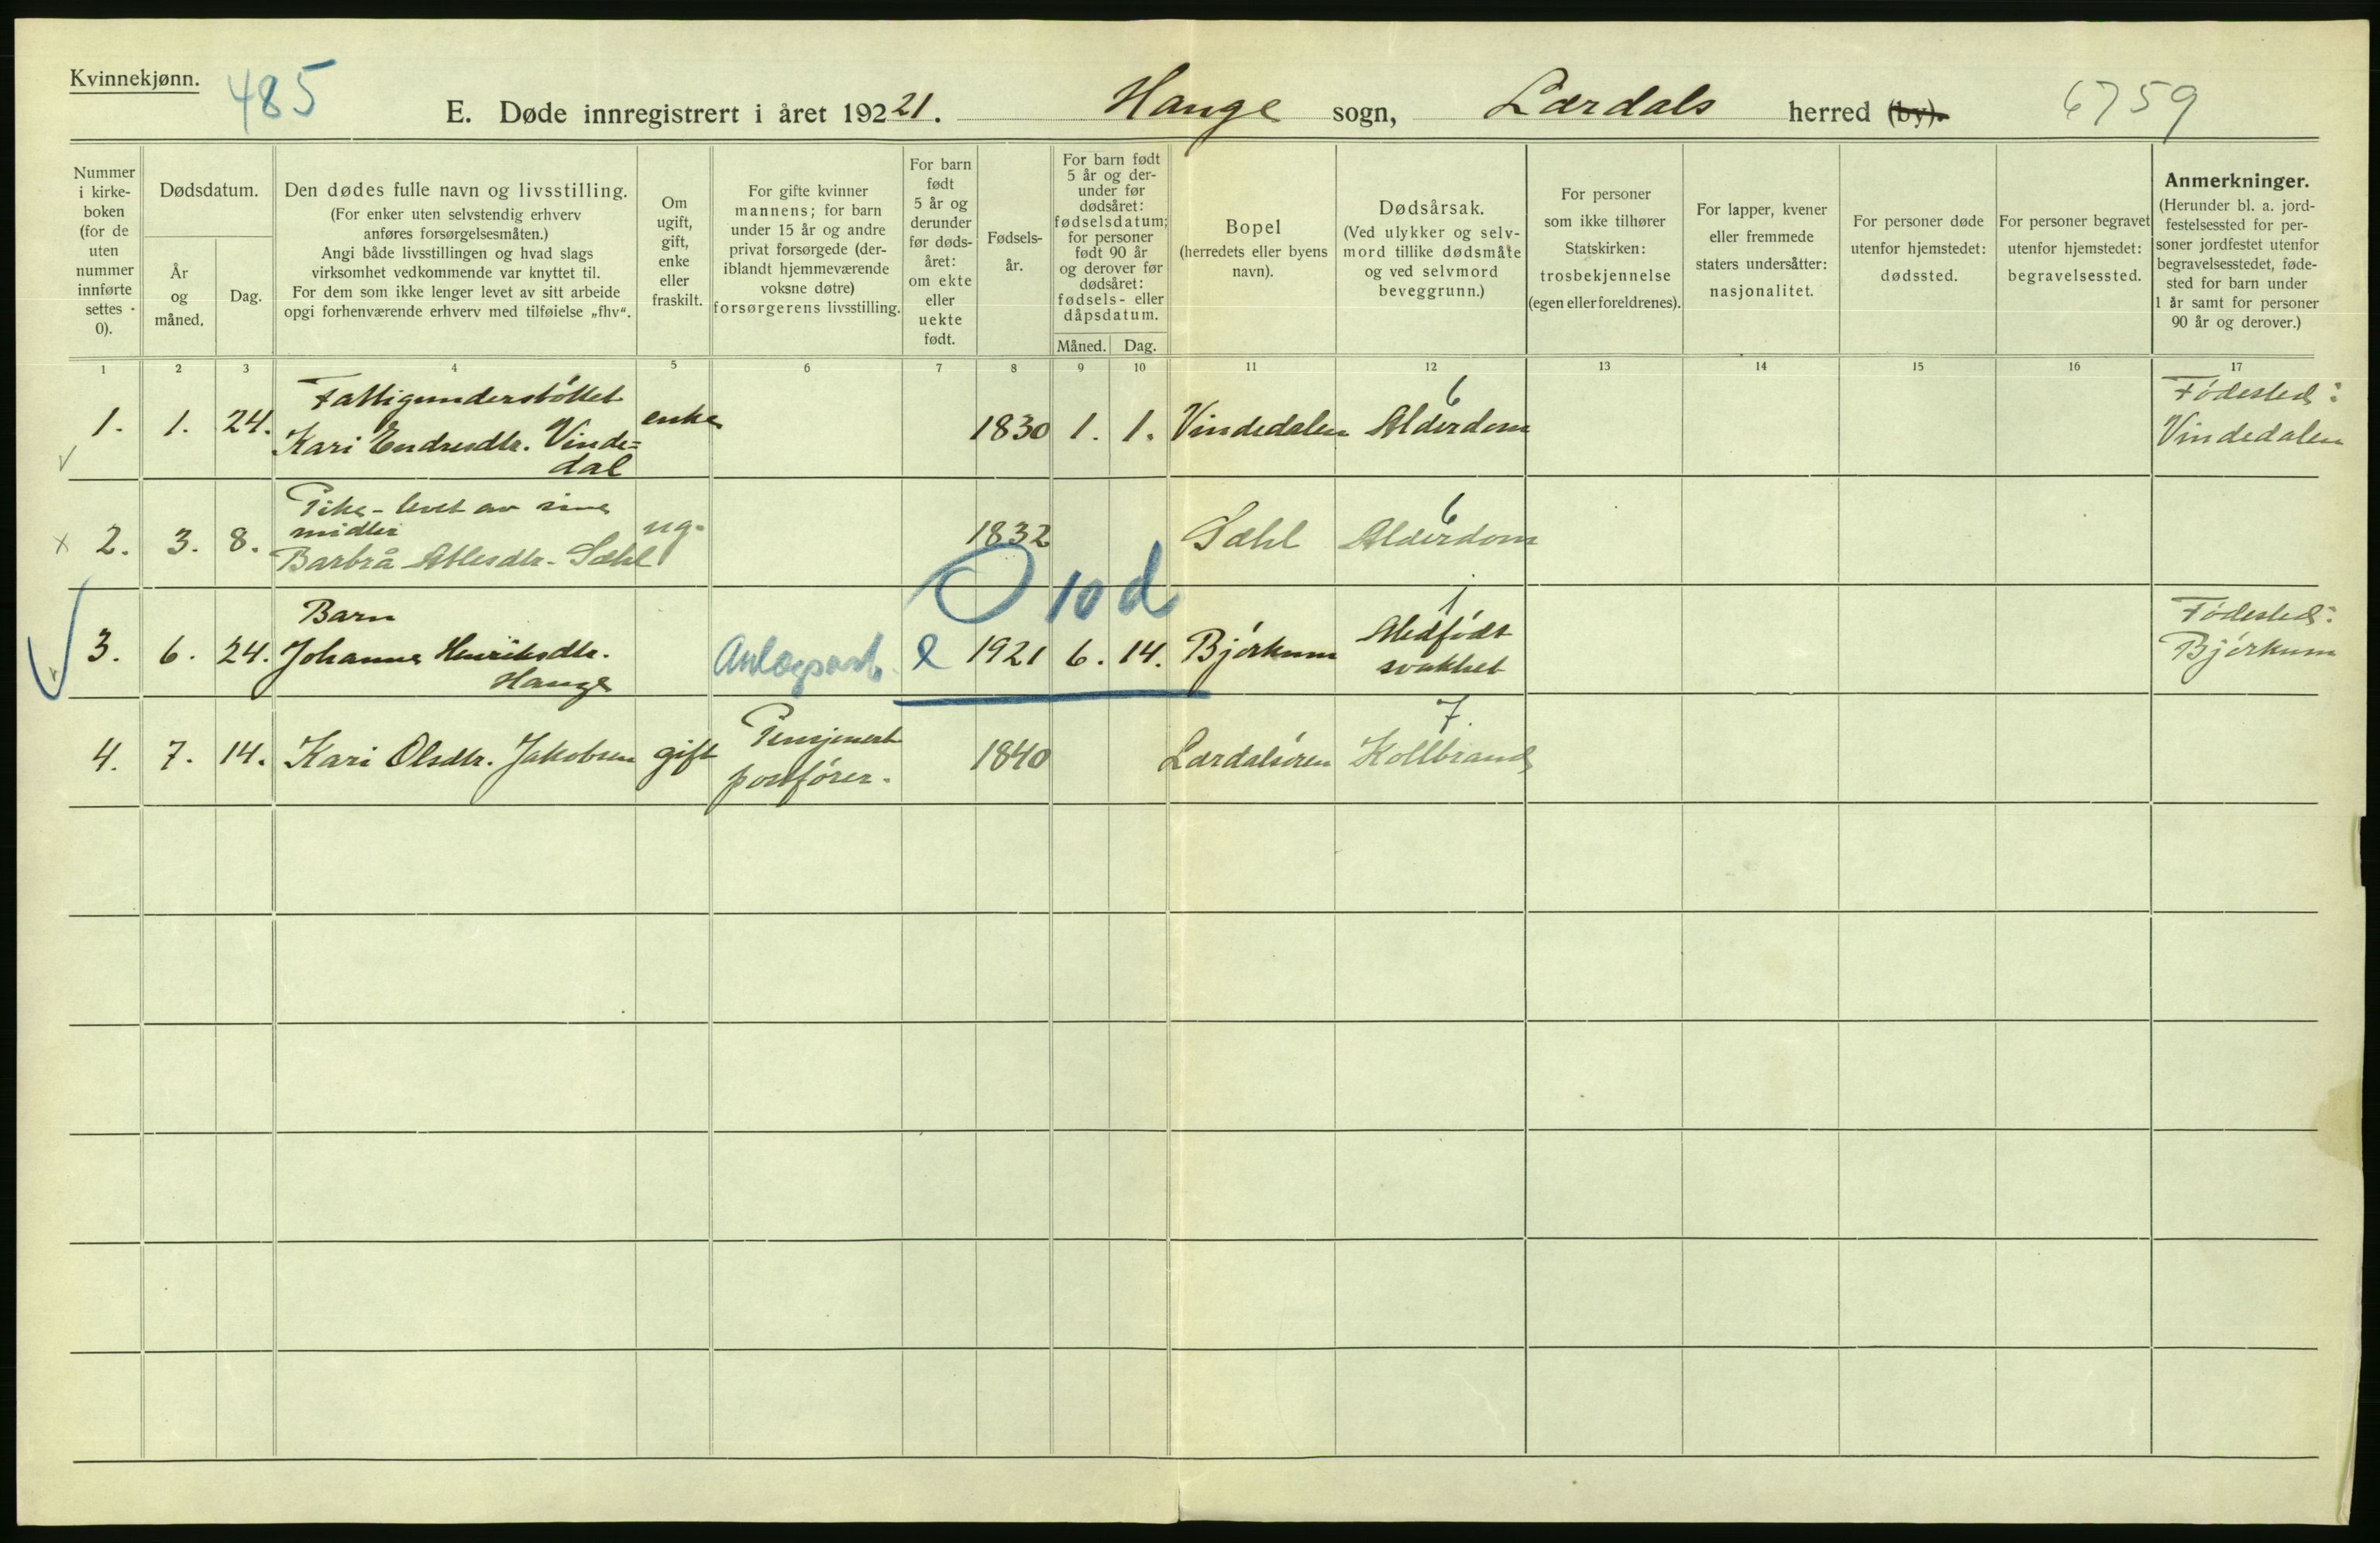 Kvinnekjønn.
485
E. Døde innregistrert i året 19221. Hauge sogn, Lærdals herred (by).
6759
Nummer i kirke-boken (for de uten nummer innførte settes 0).
Dødsdatum.
År og måned.
Dag.
Den dødes fulle navn og livsstilling.
(For enker uten selvstendig erhverv
anføres forsørgelsesmåten.)
Angi både livsstillingen og hvad slags
virksomhet vedkommende var knyttet til.
For dem som ikke lenger levet av sitt arbeide
opgi forhenværende erhverv med tilføielse „fhv“.
Om ugift, gift, enke eller fraskilt.
For gifte kvinner
mannens; for barn
under 15 år og andre
privat forsørgede (der-
iblandt hjemmeværende
voksne døtre)
forsørgerens livsstilling.
For barn født 5 år og derunder før døds-året: om ekte eller uekte født.
Fødsels-år.
For barn født
5 år og der-
under før
dødsåret:
fødselsdatum;
for personer
født 90 år
og derover før
dødsåret:
fødsels- eller
dåpsdatum.
Måned. Dag.
Bopel
(herredets eller byens
navn).
Dødsårsak.
(Ved ulykker og selv-
mord tillike dødsmåte
og ved selvmord
beveggrunn.)
For personer
som ikke tilhører
Statskirken:
trosbekjennelse
(egen eller foreldrenes).
For lapper, kvener
eller fremmede
staters undersåtter:
nasjonalitet.
For personer døde
utenfor hjemstedet:
dødssted.
For personer begravet
utenfor hjemstedet:
begravelsessted.
Anmerkninger.
(Herunder bl. a. jord-
festelsessted for per-
soner jordfestet utenfor
begravelsesstedet, føde-
sted for barn under
1 år samt for personer
90 år og derover.)
1 2 3 4 5 6 7 8 9 10 11 12 13 14 15 16 17
1. 1. 24. Fattigunderstøttet
Kari Endresdtr. Vinde=
dal
enke 1830 1. 1. Vindedalen
6
Alderdom
Fødested:
Vindedalen
2. 3. 8. Pike - levet av sine
midler
Barbrå Atlesdtr. Sæhl
ug. 1832 Sæhl
6
Alderdom
O 10 d
3. 6. 24. Barn
Johanna Henriksdtr.
Hauge
1921 6. 14. Bjørkum
1
Medfødt
svakhet
Fødested:
Bjørkum
4. 7. 14. Kari Olsdtr. Jakobsen gift
Pensjonert
postfører.
1840 Lærdalsøren
7.
Koldbrand